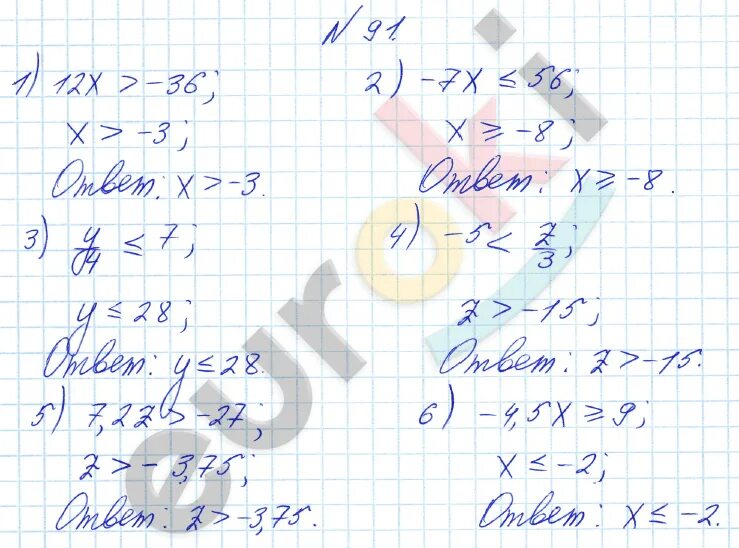 N 91.
1) 12x > -36;
x > -3;
Ответ: x > -3.
2) -7x ≤ 56;
x ≥ -8;
Ответ: x ≥ -8.
3) y/4 ≤ 7;
y ≤ 28;
Ответ: y ≤ 28.
4) -5 < z/3;
z > -15;
Ответ: z > -15.
5) 7,2z > -27;
z > -3,75;
Ответ: z > -3,75.
6) -4,5x ≥ 9;
x ≤ -2;
Ответ: x ≤ -2.
euroki